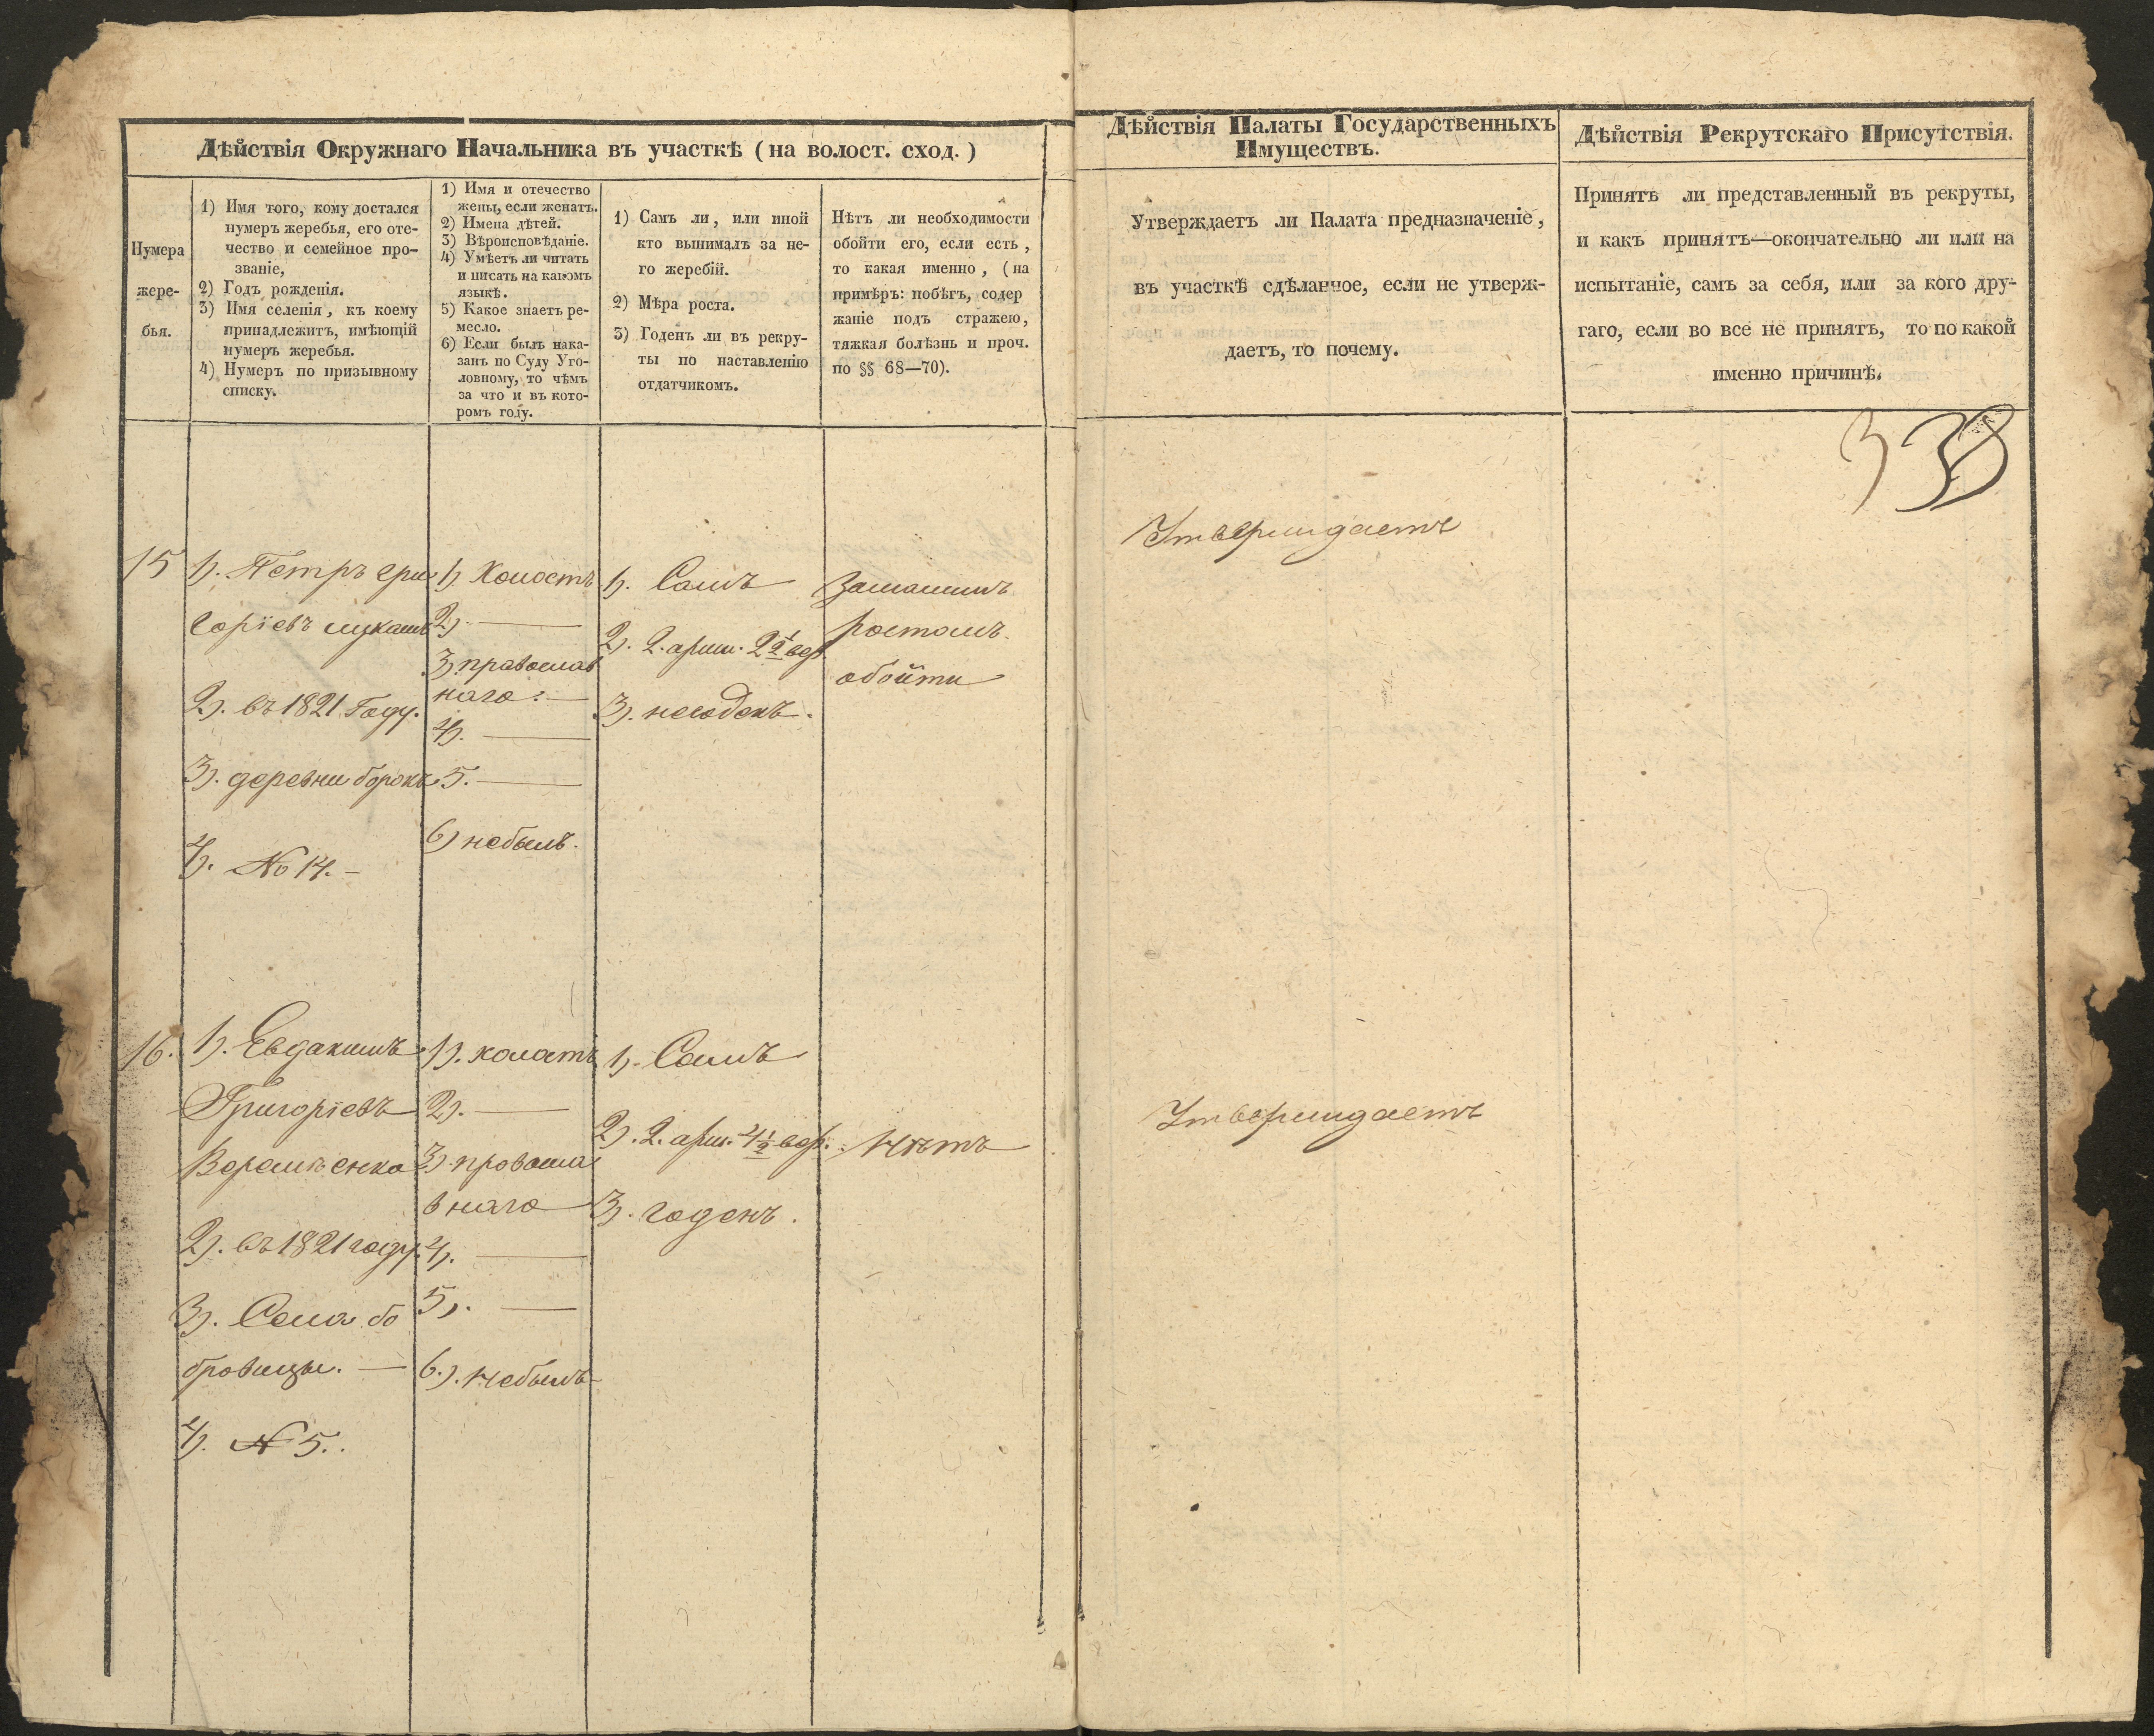 Дѣйствія Окружнаго Начальника въ участкѣ (на волост. сход.)
Нумера
жере-
бья.
1) Имя того, кому достался
нумеръ жеребья, его оте-
чество и семейное про-
званіе,
2) Годъ рожденія.
3) Имя селенія, къ коему
принадлежитъ, имѣющій
нумеръ жеребья.
4) Нумеръ по призывному
списку.
1) Имя и отечество
жены, если женатъ.
2) Имена дѣтей.
3) Вѣроисповѣданіе.
4) Умѣетъ ли читать
и писать на какомъ
языкѣ.
5) Какое знаетъ ре-
месло.
6) Если былъ нака-
занъ по Суду Уго-
ловному, то чѣмъ
за что и въ кото-
ромъ году.
1) Самъ ли, или иной
кто вынималъ за не-
го жеребій.
2) Мѣра роста.
3) Годенъ ли въ рекру-
ты по наставленію
отдатчикомъ.
Нѣтъ ли необходимости
обойти его, если есть,
то какая именно, (на
примѣръ: побѣгъ, содер
жаніе подъ стражею,
тяжкая болѣзнь и проч.
по §§ 68—70).
Дѣйствія Палаты Государственныхъ
Имуществъ.
Утверждаетъ ли Палата предназначеніе,
въ участкѣ сдѣланное, если не утверж-
даетъ, то почему.
Дѣйствія Рекрутскаго Присутствія.
Принятъ ли представленный въ рекруты,
и какъ принятъ—окончательно ли или на
испытаніе, самъ за себя, или за кого дру-
гаго, если во все не принятъ, то по какой
именно причинѣ.
338
15
1). Петръ гри
горіевъ лукашъ
2). въ 1821 Году.
3). деревни борокъ
4). No 14. —
1) Холостъ
2). —
3) православ
наго: —
4). —
5. —
6) небылъ.
1). Самъ
2). 2. арши. 2 1/2 вер.
3). негоденъ.
Замалымъ
ростомъ
обойти
Утверждаетъ
16.
1). Евдакимъ
Григоріевъ
2). въ 1821 году.
3). Села бо
бровицы. —
4). N 5..
1). холостъ
2). —
3) правосла
внаго
4). —
5). —
6.). небылъ
1). Самъ
2). 2. арш. 4 1/2 вер.
3). годенъ.
Нѣтъ
Утверждаетъ